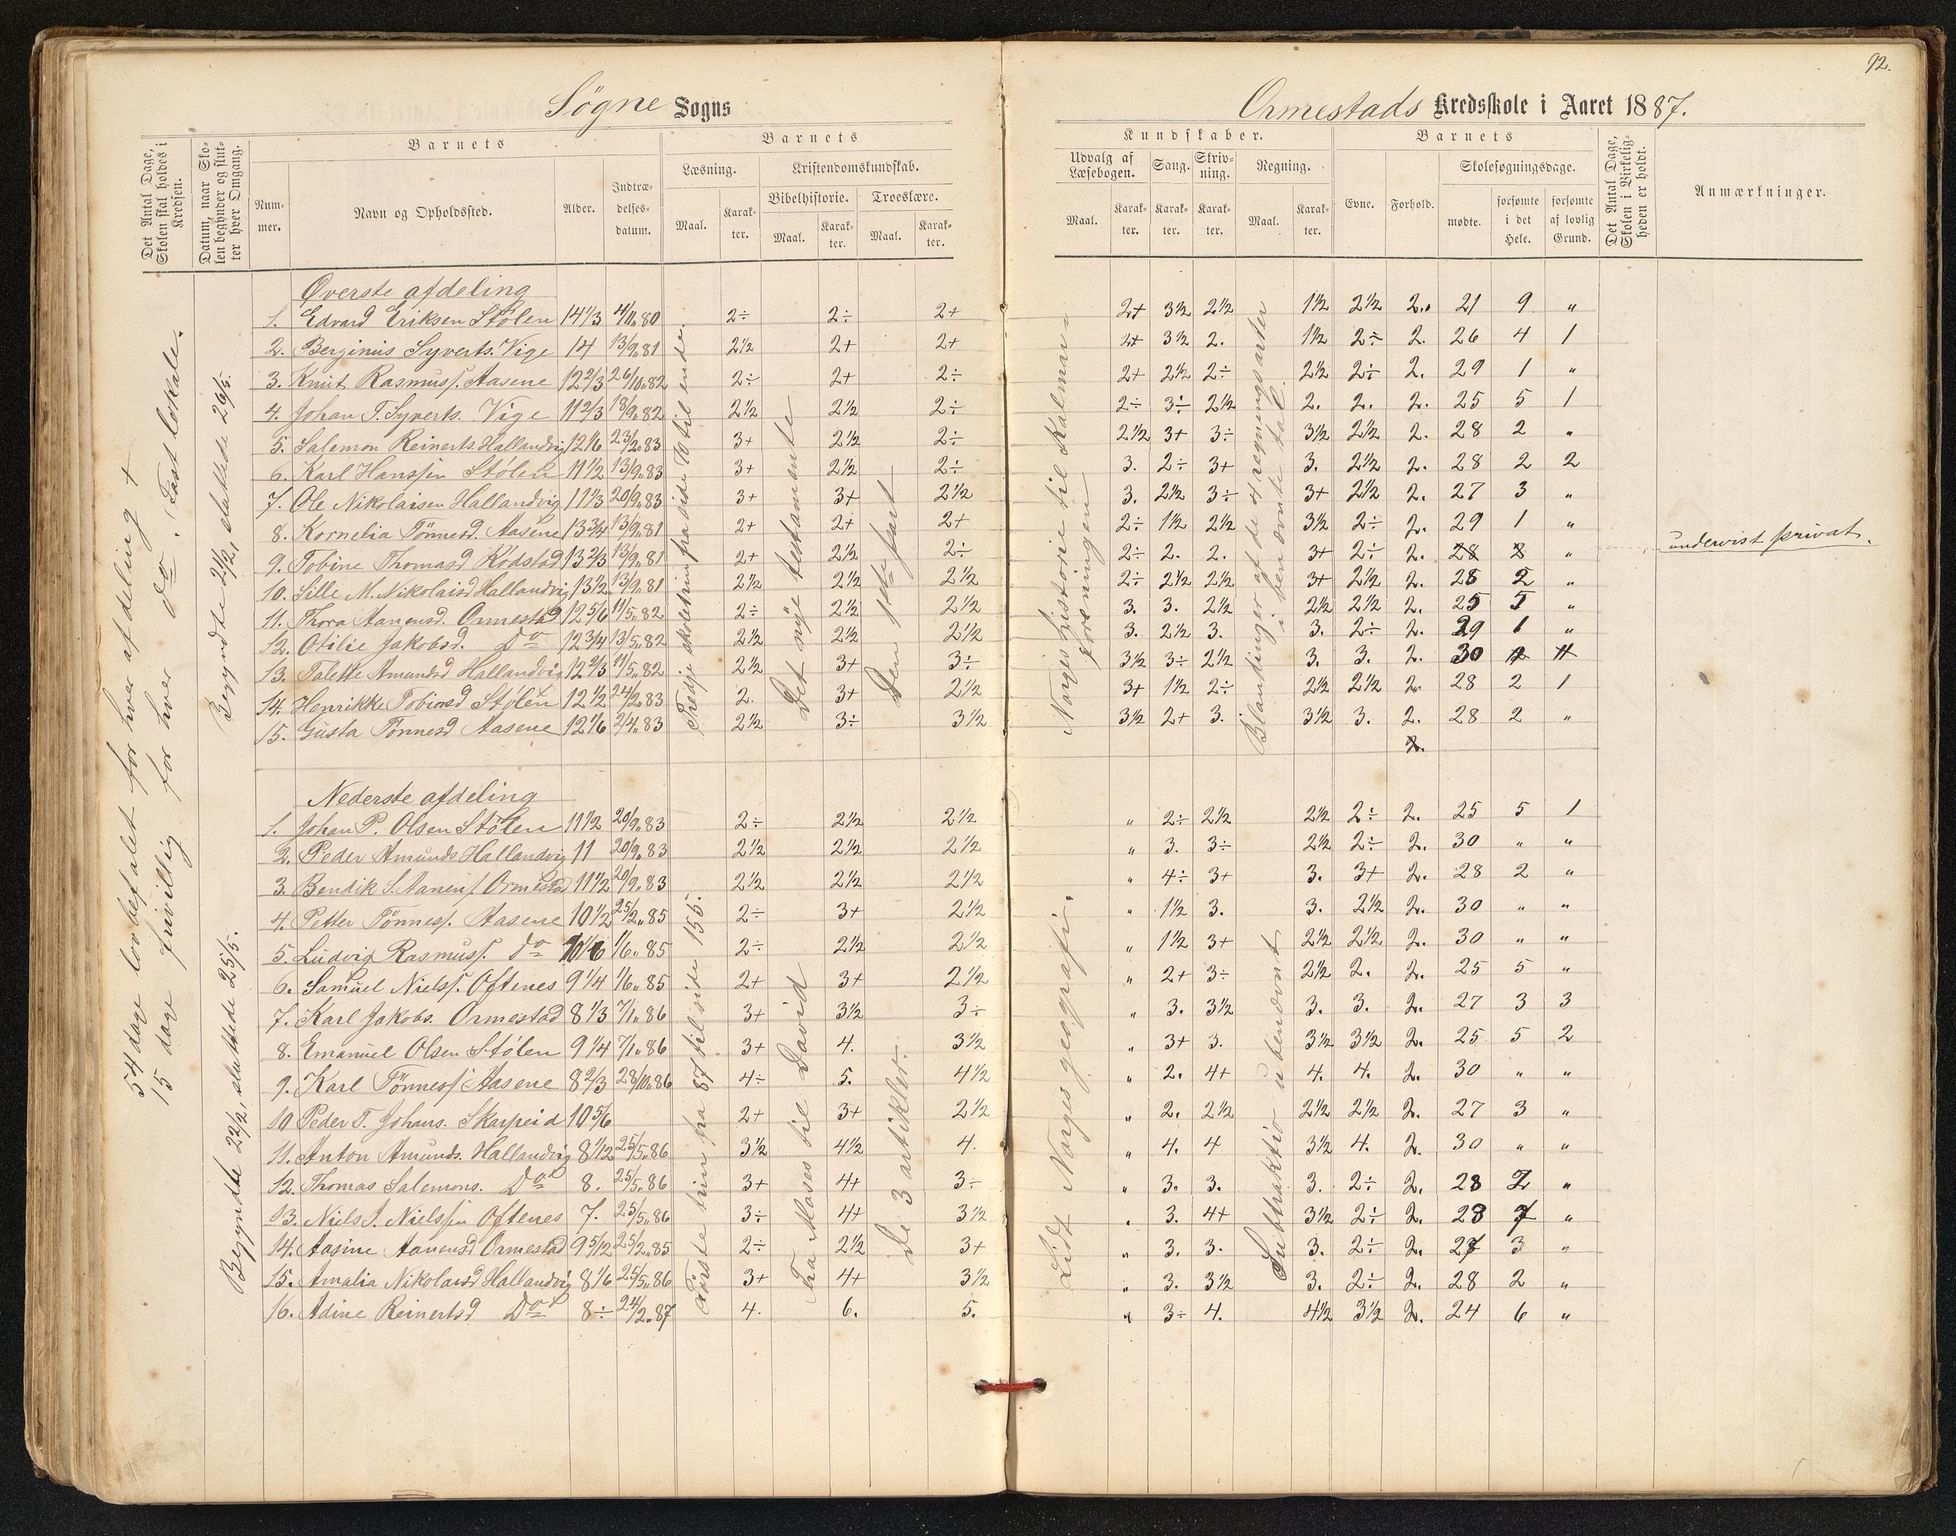 92.
Søgne Sogns
Ormestads Kredsskole i Aaret 1887.
Det Antal Dage, Skolen skal holdes i Kredsen.
Datum, naar Skolen begynder og slutter hver Omgang.
Barnets
Nummer.
Navn og Opholdssted.
Alder.
Indtrædelsesdatum.
Barnets
Læsning.
Kristendomskundskab.
Bibelhistorie.
Troeslære.
Maal.
Karakter.
Maal.
Karakter.
Maal.
Karakter.
Kundskaber.
Udvalg af Læsebogen.
Sang.
Skrivning.
Regning.
Maal.
Karakter.
Karakter.
Karakter.
Maal.
Karakter.
Barnets
Evne.
Forhold.
Skolesøgningsdage.
mødte.
forsømte i det Hele.
forsømte af lovlig Grund.
Det Antal Dage, Skolen i Virkeligheden er holdt.
Anmærkninger.
54 dage lovbefalet for hver afdeling +
15 dage frivillig for hver Do. (Fast lokale.
Begyndte 21/2, sluttede 26/5.
Begyndte 22/2, sluttede 25/5.
Øverste afdeling
1. Edvard Eriksen Stølen 14 1/3 4/11.80 2÷ 2÷ 2+ 2+ 3½ 2½ 1½ 2½ 2. 21 9 "
2. Berginius Syverts. Vige 14 13/9.81 2½ 2+ 2+ 2+ 3½ 2. 1½ 2÷ 2. 26 4 1
3. Knut Rasmuss. Aasene 12 2/3 26/10.82 2÷ 2+ 2÷ 2+ 2½ 2÷ 2½ 2÷ 2. 29 1 "
4. Johan T. Syverts. Vige 11 2/3 18/9.82 2½ 2½ 2÷ 2÷ 3÷ 2½ 2. 2. 2. 25 5 1
5. Salemon Reinerts. Hallandvig 12 1/6 23/2.83 3+ 2½ 2÷ 2½ 3+ 3÷ 3½ 2½ 2. 28 2 "
6. Karl Hanssen Stølen 11 1/2 13/9.83 3+ 2½ 2÷ 3. 2÷ 3+ 3. 2½ 2. 28 2 2
7. Ole Nikolaisen Hallandvig 11 1/3 20/9.83 3+ 3+ 2½ 3. 2½ 3÷ 3+ 2½ 2. 27 3 "
8. Kornelia Tönnesd. Aasene 13 3/4 13/9.81 2+ 2+ 2+ 2÷ 1½ 2½ 3½ 2÷ 2. 29 1 "
9. Tobine Thomasd. Rödstad 13 2/3 13/9.81 2+ 2½ 2÷ 2÷ 2. 2. 3+ 2÷ 2. 28 2 " undervist privat.
10. Sille M. Nikolaisd. Hallandvig 13 1/2 13/9.81 2½ 2½ 2½ 2÷ 2½ 2½ 3+ 2½ 2. 28 2 "
11. Thora Aanensd. Ormestad 12 5/6 11/5.82 2÷ 2½ 2½ 3. 3. 2½ 2½ 2½ 2. 25 5 "
12. Otilie Jakobsd. Do 12 3/4 13/5.82 2½ 2½ 2½ 3. 2½ 3. 3. 2÷ 2. 29 1 "
13. Talette Amundsd. Hallandvig 12 2/3 11/5.82 2½ 3+ 3÷ 3½ 3÷ 2½ 3. 3. 2. 30 " "
14. Henrikke Tobiasd. Stølen 12 1/2 24/2.83 2. 3+ 2½ 3+ 1½ 2÷ 2½ 2½ 2. 28 2 1
15. Gusta Tönnesd. Aasene 12 1/6 2/4.83 2½ 3÷ 3½ 3½ 2+ 3. 3½ 3. 2. 28 2 "
2.
Tredje skoletrin fra side 70 til ende.
Det nye testamente
Den 1ste part
Norges historie til Kalmar-foreningen
Blandinger af de 4 regningsarter i benævnte tal.
Nederste afdeling
1. Johan P. Olsen Stölen 11 1/2 20/9.83 2÷ 2½ 2½ " 2÷ 2½ 2½ 2÷ 2. 25 5 1
2. Peder Amunds. Hallandvig 11 20/9.83 2½ 2½ 2½ " 3. 3÷ 2½ 2÷ 2. 30 " "
3. Bendik S. Aanens. Ormestad 11 1/2 20/9.83 2½ 2½ 2½ " 4÷ 3+ 3. 3+ 2. 28 2 "
4. Petter Tönness. Aasene 10 1/2 25/2.85 2÷ 3+ 2½ " 1½ 3. 3. 2½ 2. 30 " "
5. Ludvig Rasmuss. Do 10 1/6 1/6.85 2÷ 2½ 2½ " 1½ 3+ 2½ 2½ 2. 30 " "
6. Samuel Nielss. Oftenes 9 1/4 1/6.85 2+ 3+ 2½ " 2+ 3÷ 2½ 2. 2. 25 5 "
7. Karl Jakobs. Ormestad 8 1/3 7/1.86 3+ 3½ 3÷ " 3. 3½ 3. 3. 2. 27 3 3
8. Emanuel Olsen Stölen 9 1/4 7/1.86 3+ 4. 3½ " 3+ 3. 3½ 3½ 2. 25 5 2
9. Karl Tönness. Aasene 8 2/3 28/10.86 4÷ 5. 4½ " 2. 4+ 4. 4. 2. 30 " "
10 Peder T. Johans. Skarpeid 10 5/6 2+ 3+ 2½ " 2. 2½ 2½ 2½ 2. 27 3 "
11. Anton Amunds. Hallandvig 8 1/12 25/5.86 3½ 4½ 4. " 4. 4 3½ 4. 2. 30 " "
12. Thomas Salemons. Do 8. 25/5.86 3+ 4+ 3÷ " 3. 3. 3. 2÷ 2. 28 2 "
13. Niels J. Nielssen Oftenes 7. 25/5.86 3÷ 4+ 3½ " 3. 4+ 3½ 2÷ 2. 23 7 "
14. Aasine Aanensd. Ormestad 9 5/12 25/2.85 2÷ 2½ 3+ " 3. 3. 3. 2÷ 2. 27 3 "
15. Amalia Nikolaisd. Hallandvig 8 1/6 25/5.86 3+ 4+ 3½ " 3. 3½ 3. 2÷ 2. 28 2 "
16. Adine Reinertsd. Do 8÷ 24/2.87 4. 6. 5. " 3÷ 4. 4½ 3½ 2. 24 6 "
Første trin fra 87 til side 155.
Fra Moses til David
De 3 artikler.
Lidt Norges geografi.
Subtraktion ubenævnt